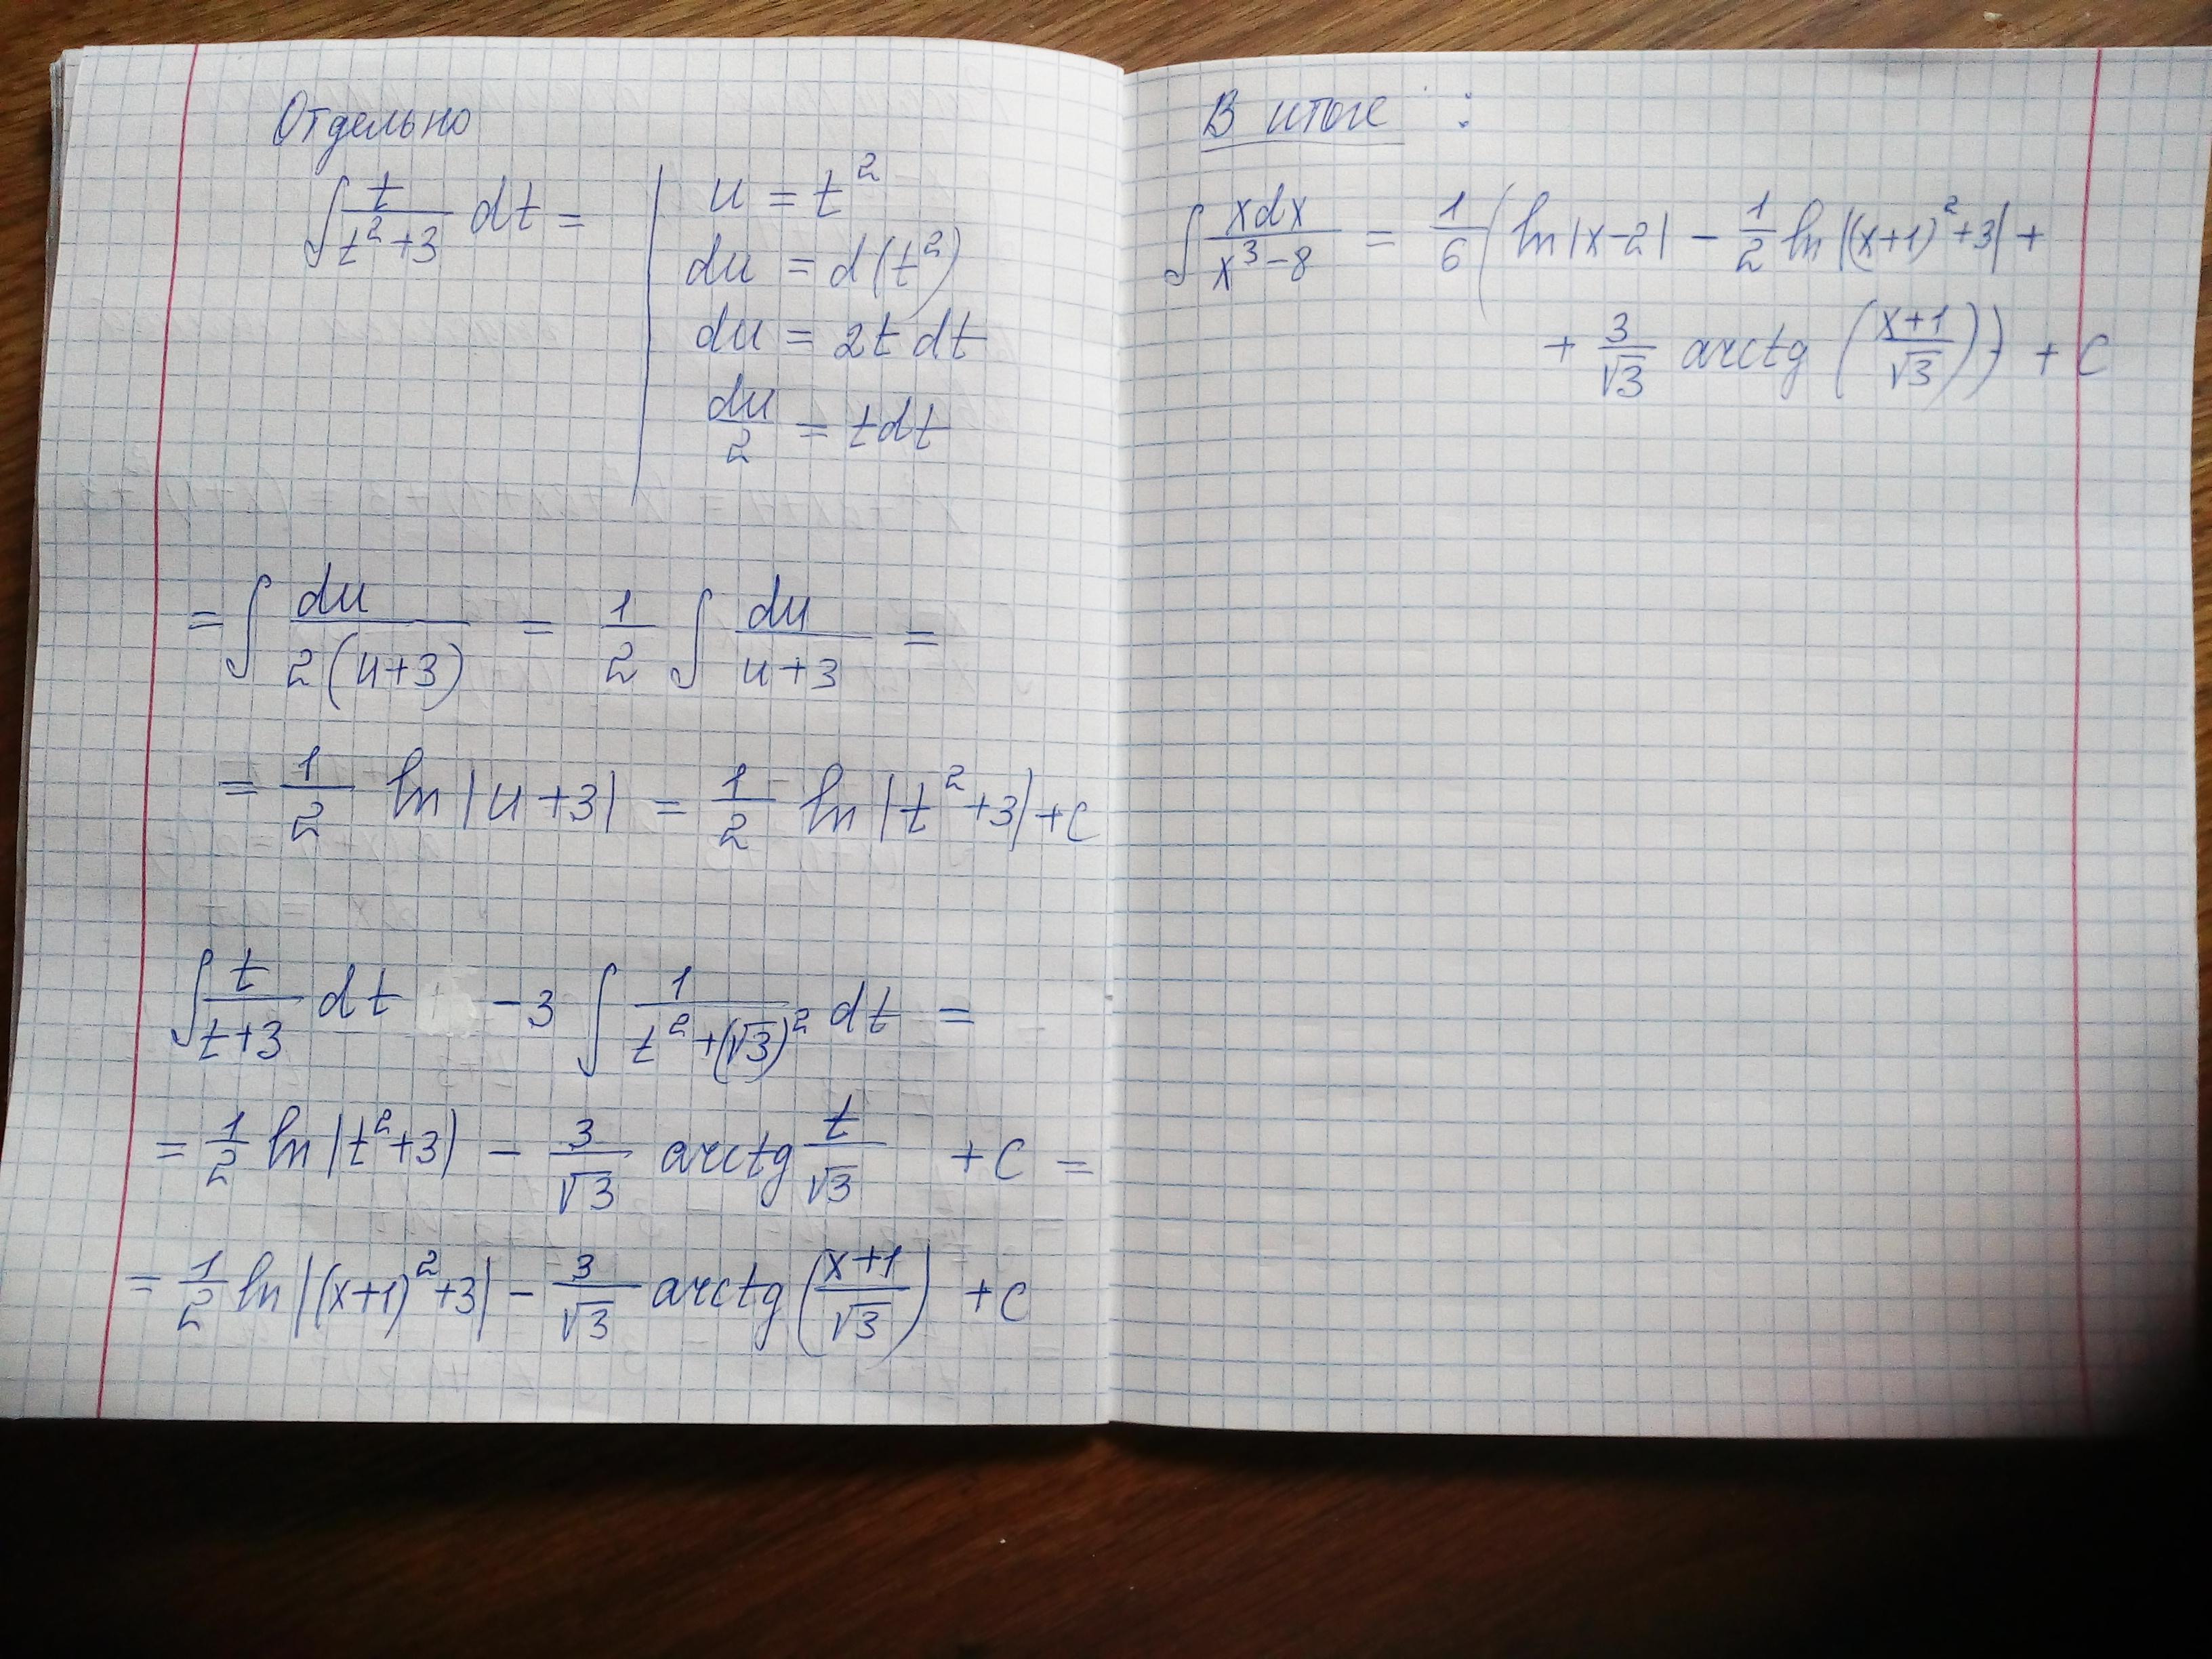 Отдельно
∫ t/(t²+3) dt = | u = t²
du = d(t²)
du = 2t dt
du/2 = t dt
= ∫ du/(2(u+3)) = 1/2 ∫ du/(u+3) =
= 1/2 ln|u+3| = 1/2 ln|t²+3| + C
∫ t/(t+3) dt - 3 ∫ 1/(t²+(√3)²) dt =
= 1/2 ln|t²+3| - 3/√3 arctg t/√3 + C =
= 1/2 ln|(x+1)²+3| - 3/√3 arctg((x+1)/√3) + C
В итоге :
∫ xdx/(x³-8) = 1/6 (ln|x-2| - 1/2 ln|(x+1)²+3| +
+ 3/√3 arctg((x+1)/√3)) + C